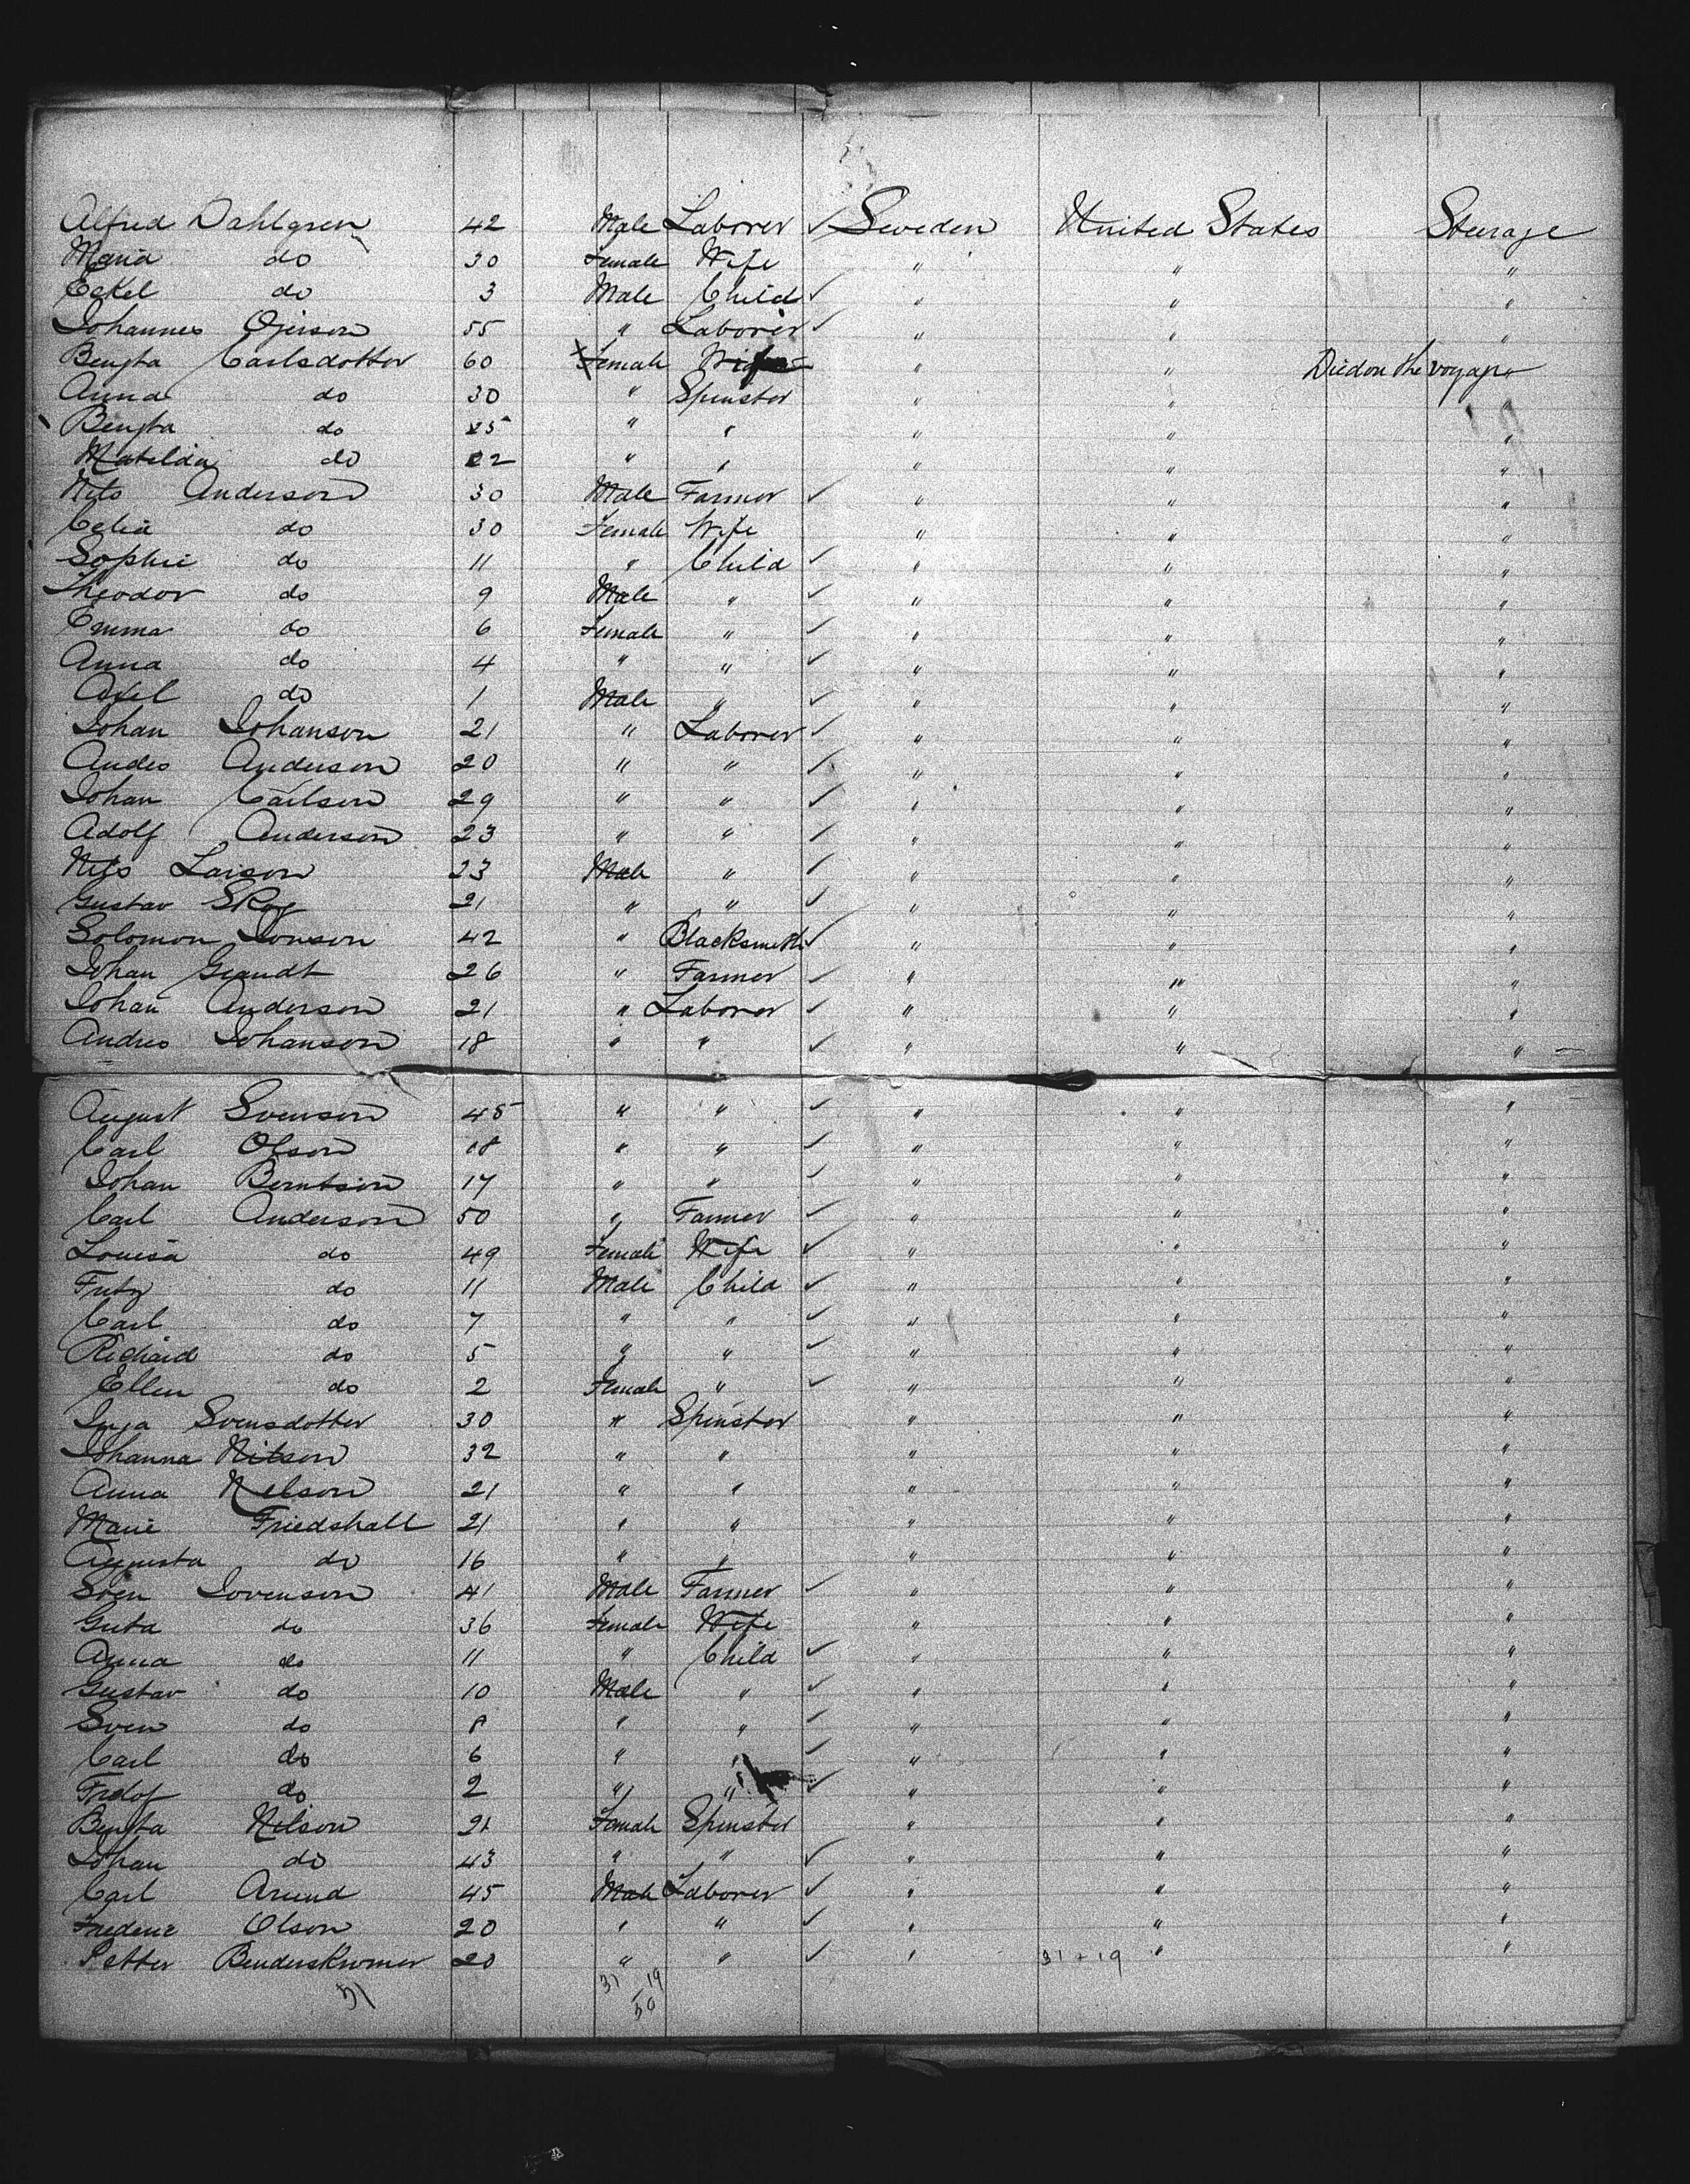 Alfred Dahlgren 42 Male Laborer ✓ Sweden United States Steerage
Maria do 30 Female Wife " " "
Eckel do 3 Male Child ✓ " " "
Johannes 55 " Laborer ✓ " " "
Bengta Carlsdotter 60 Female Wife " " Died on the voyage
Anna do 30 " Spinster " " "
Bengta do 25 " " " " "
Matilda do 22 " " " " "
Nils Anderson 30 Male Farmer ✓ " " "
Celia do 30 Female Wife " " "
Sophie do 11 " Child ✓ " " "
Theodor do 9 Male " ✓ " " "
Emma do 6 Female " ✓ " " "
Anna do 4 " " ✓ " " "
Axel do 1 Male " ✓ " " "
Johan Johanson 21 " Laborer ✓ " " "
Andes Anderson 20 " " ✓ " " "
Johan Carlson 29 " " ✓ " " "
Adolf Anderson 23 " " ✓ " " "
Nils Larson 23 Male " ✓ " " "
Gustav Skog 21 " " ✓ " " "
Solomon Jonson 42 " Blacksmith ✓ " " "
Johan Grandt 26 " Farmer ✓ " " "
Johan Anderson 21 " Laborer ✓ " " "
Andres Johanson 18 " " ✓ " " "
August Svenson 45 " " ✓ " " "
Carl Olson 18 " " ✓ " " "
Johan Berntsion 17 " " ✓ " " "
Carl Anderson 50 " Farmer ✓ " " "
Louisa do 49 Female Wife ✓ " " "
Fritz do 11 Male Child ✓ " " "
Carl do 7 " " ✓ " " "
Richard do 5 " " ✓ " " "
Ellen do 2 Female " ✓ " " "
Inga Svensdotter 30 " Spinster " " "
Johanna Nilson 32 " " " " "
Anna Nelson 21 " " " " "
Marie Friedshall 21 " " " " "
Augusta do 16 " " " " "
Sven Sovenson 41 Male Farmer ✓ " " "
Guta do 36 Female Wife " " "
Anna do 11 " Child ✓ " " "
Gustav do 10 Male " ✓ " " "
Sven do 8 " " ✓ " " "
Carl do 6 " " ✓ " " "
Fridof do 2 " " ✓ " " "
Bengta Nilson 21 Female Spinster " " "
Johan do 43 " " ✓ " " "
Carl Arund 45 Male Laborer ✓ " " "
Frederic Olson 20 " " ✓ " " "
Petter 20 " " ✓ " 31 + 19 " "
51 31 19
50